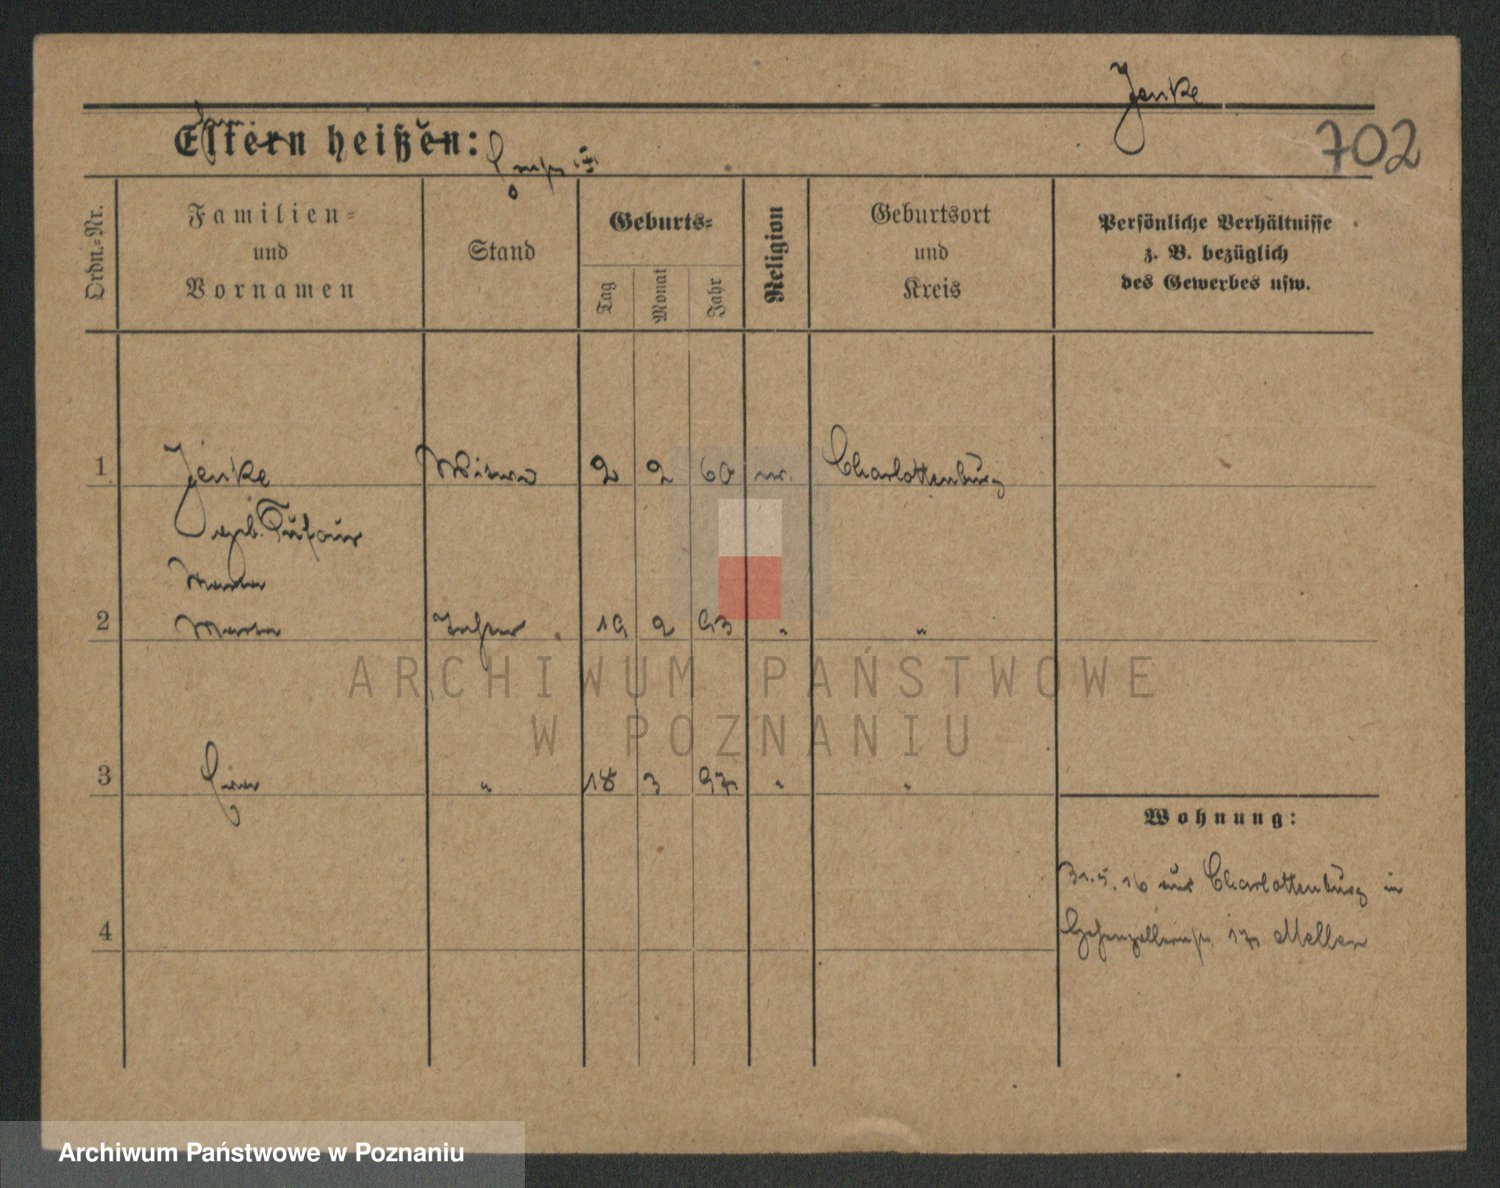 Jenke
702
Eltern heißen:
Ordn.-Nr.
Familien-
und
Vornamen
Stand
Geburts-
Tag
Monat
Jahr
Religion
Geburtsort
und
Kreis
Persönliche Verhältnisse
z. B. bezüglich
des Gewerbes usw.
1 Jenke Witwe 2 2 60 Charlottenburg
geb. Dufour
Maria
2 Tochter 19 2 93 " "
3 " 18 3 97 " "
Wohnung:
31.5.16 aus Charlottenburg in
4
Hohenzollernstr. 17
ARCHIWUM PAŃSTWOWE
W POZNANIU
Archiwum Państwowe w Poznaniu